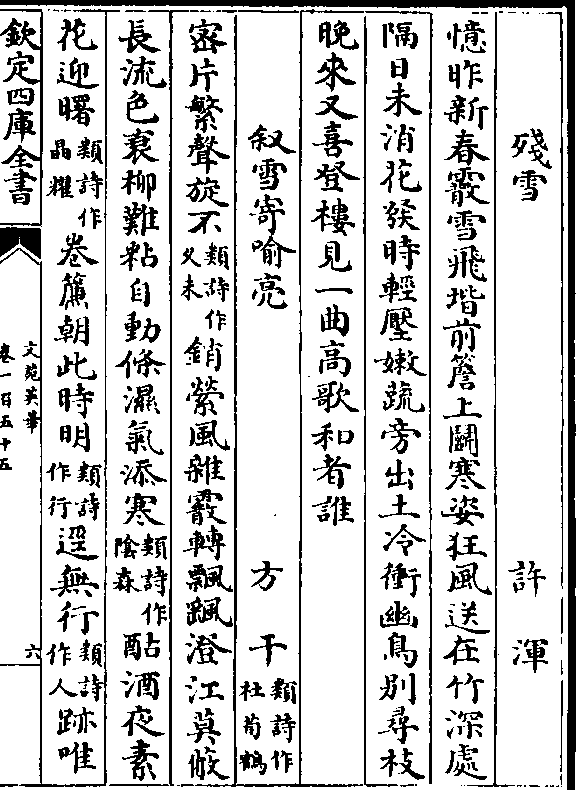 殘雪　許渾
憶昨新春霰雪飛堦前簷上鬭寒姿狂風送在竹深處
隔日未消花發時輕壓嫩蔬旁出土冷衝幽鳥別尋枝
晚來又喜登樓見一曲高歌和者誰
叙雪寄喻亮　方干類詩作杜荀鶴
密片繁聲旋不類詩作又未銷縈風雜霰轉飄颻澄江莫傚
長流色衰柳難粘自動條濕氣添寒類詩作陰森酤酒夜素
花迎曙類詩作晶耀卷簾朝此時明類詩作行逕無行類詩作人跡唯
欽定四庫全書
文苑英華
卷一百五十五
六